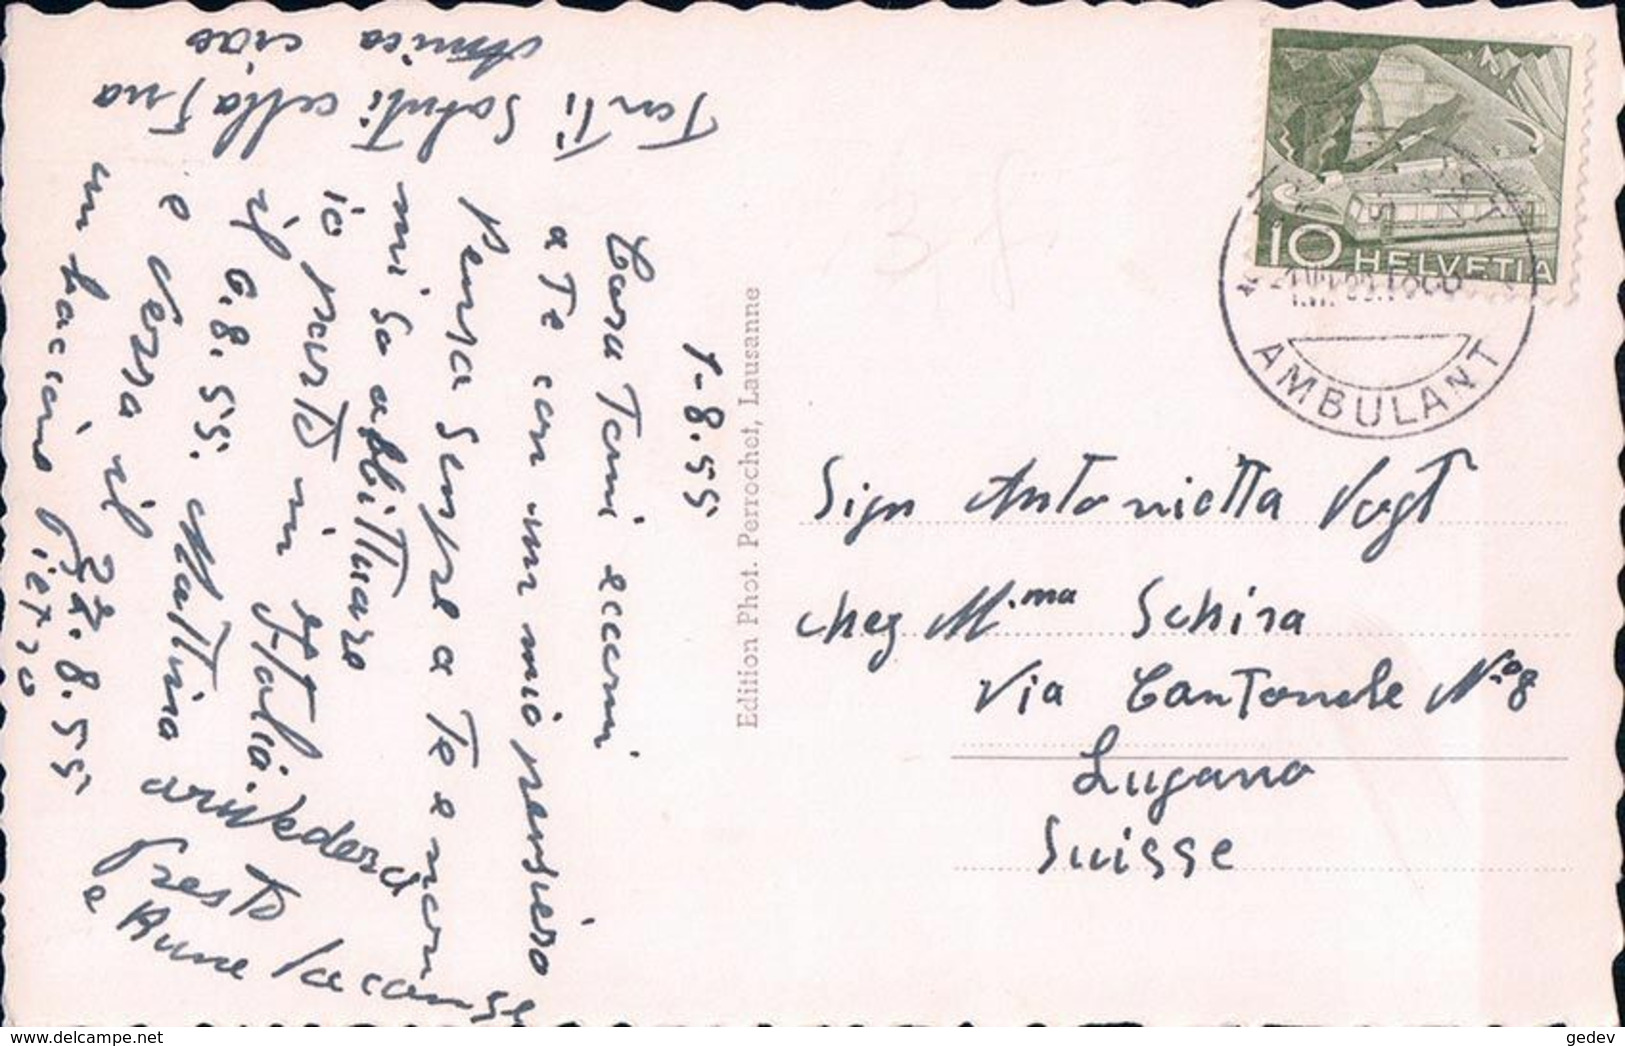 1-8.55
Cara Toni eccomi
a Te con un mio pensiero
Penso sempre a Te e non
mi so abbittuare
io parto in Italia
il 6.8.55. Mattina
e verso il 22.8.55
un bacione Pietro
arivederci
presto
e Buone Vacanse
Tanti Saluti alla Tua
Amica ciao
Edition Phot. Perrochet, Lausanne
10 HELVETIA
AMBULANT
Sign Antonietta Vogt
chez M.ma Schira
Via Cantonale N.o 8
Lugano
Suisse
www.delcampe.net
gedev